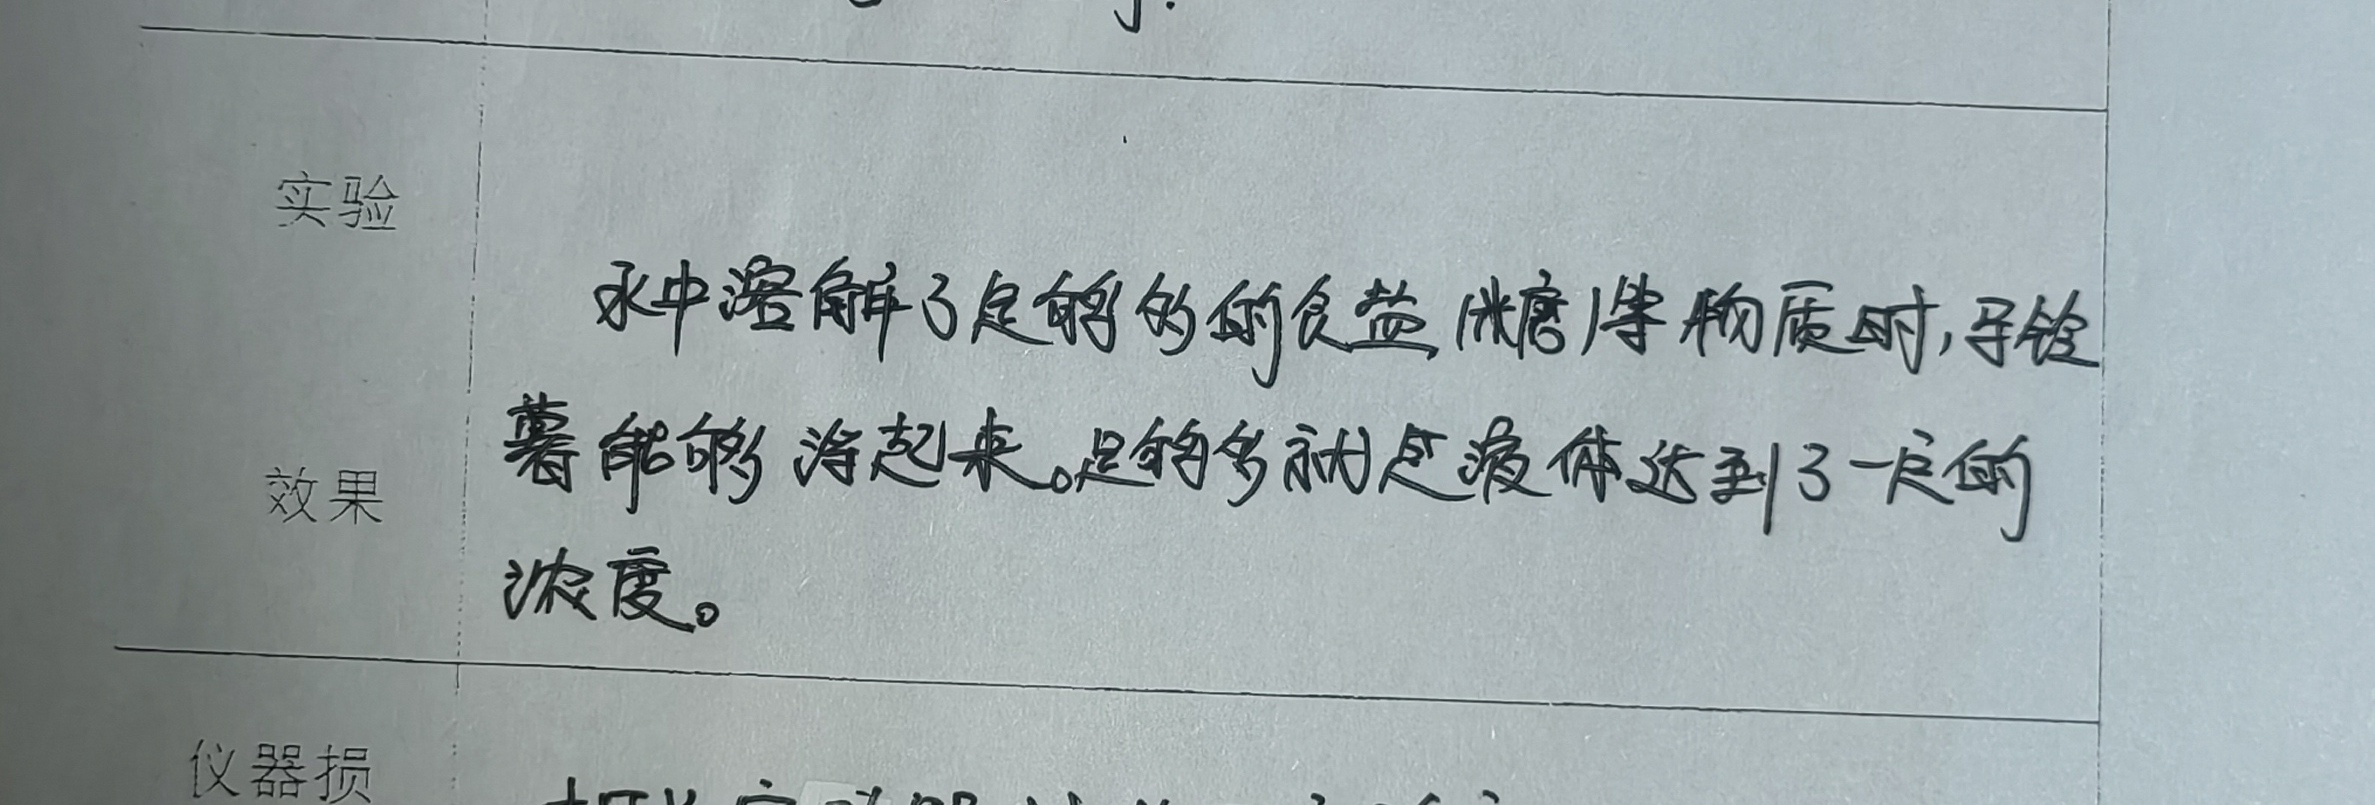 实验
水中溶解了足够多的食盐(糖)等物质时,马铃
薯能够浮起来。足够多就是液体达到了一定的
效果
浓度。
仪器损